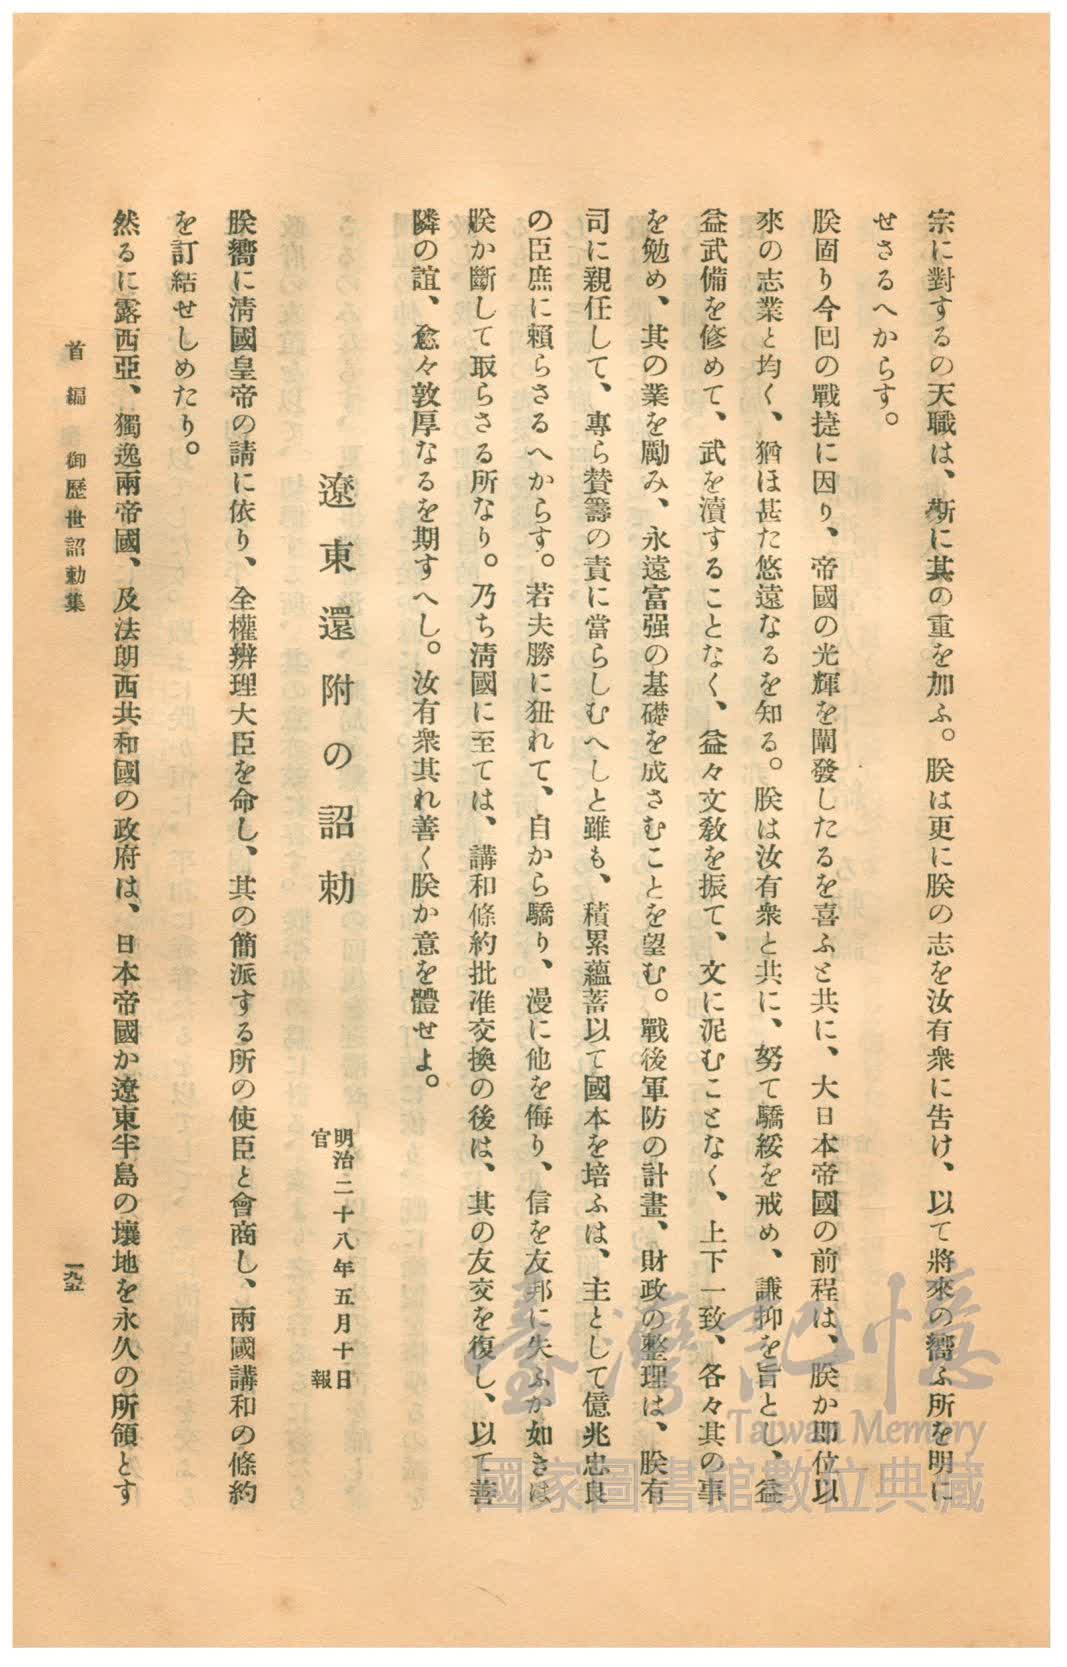 宗に對するの天職は、斯に其の重を加ふ。朕は更に朕の志を汝有衆に告け、以て將來の嚮ふ所を明に
せさるへからす。
朕固り今回の戰捷に因り、帝國の光輝を闡發したるを喜ふと共に、大日本帝國の前程は、朕か即位以
來の志業と均く、猶ほ甚た悠遠なるを知る。朕は汝有衆と共に、努て驕綏を戒め、謙抑を旨とし、益
益武備を修めて、武を瀆することなく、益々文敎を振て、文に泥むことなく、上下一致、各々其の事
を勉め、其の業を勵み、永遠富强の基礎を成さむことを望む。戰後軍防の計畫、財政の整理は、朕有
司に親任して、專ら贊籌の責に當らしむへしと雖も、積累蘊蓄以て國本を培ふは、主として億兆忠良
の臣庶に賴らさるへからす。若夫勝に狃れて、自から驕り、漫に他を侮り、信を友邦に失ふか如きは
朕か斷して取らさる所なり。乃ち淸國に至ては、講和條約批准交換の後は、其の友交を復し、以て善
隣の誼、愈々敦厚なるを期すへし。汝有衆其れ善く朕か意を體せよ。
遼東還附の詔勅
明治二十八年五月十日
官報
朕嚮に淸國皇帝の請に依り、全權辨理大臣を命し、其の簡派する所の使臣と會商し、兩國講和の條約
を訂結せしめたり。
然るに露西亞、獨逸兩帝國、及法朗西共和國の政府は、日本帝國か遼東半島の壤地を永久の所領とす
首編 御歷世詔勅集
一九五
臺灣記憶
Taiwan Memory
國家圖書館數位典藏